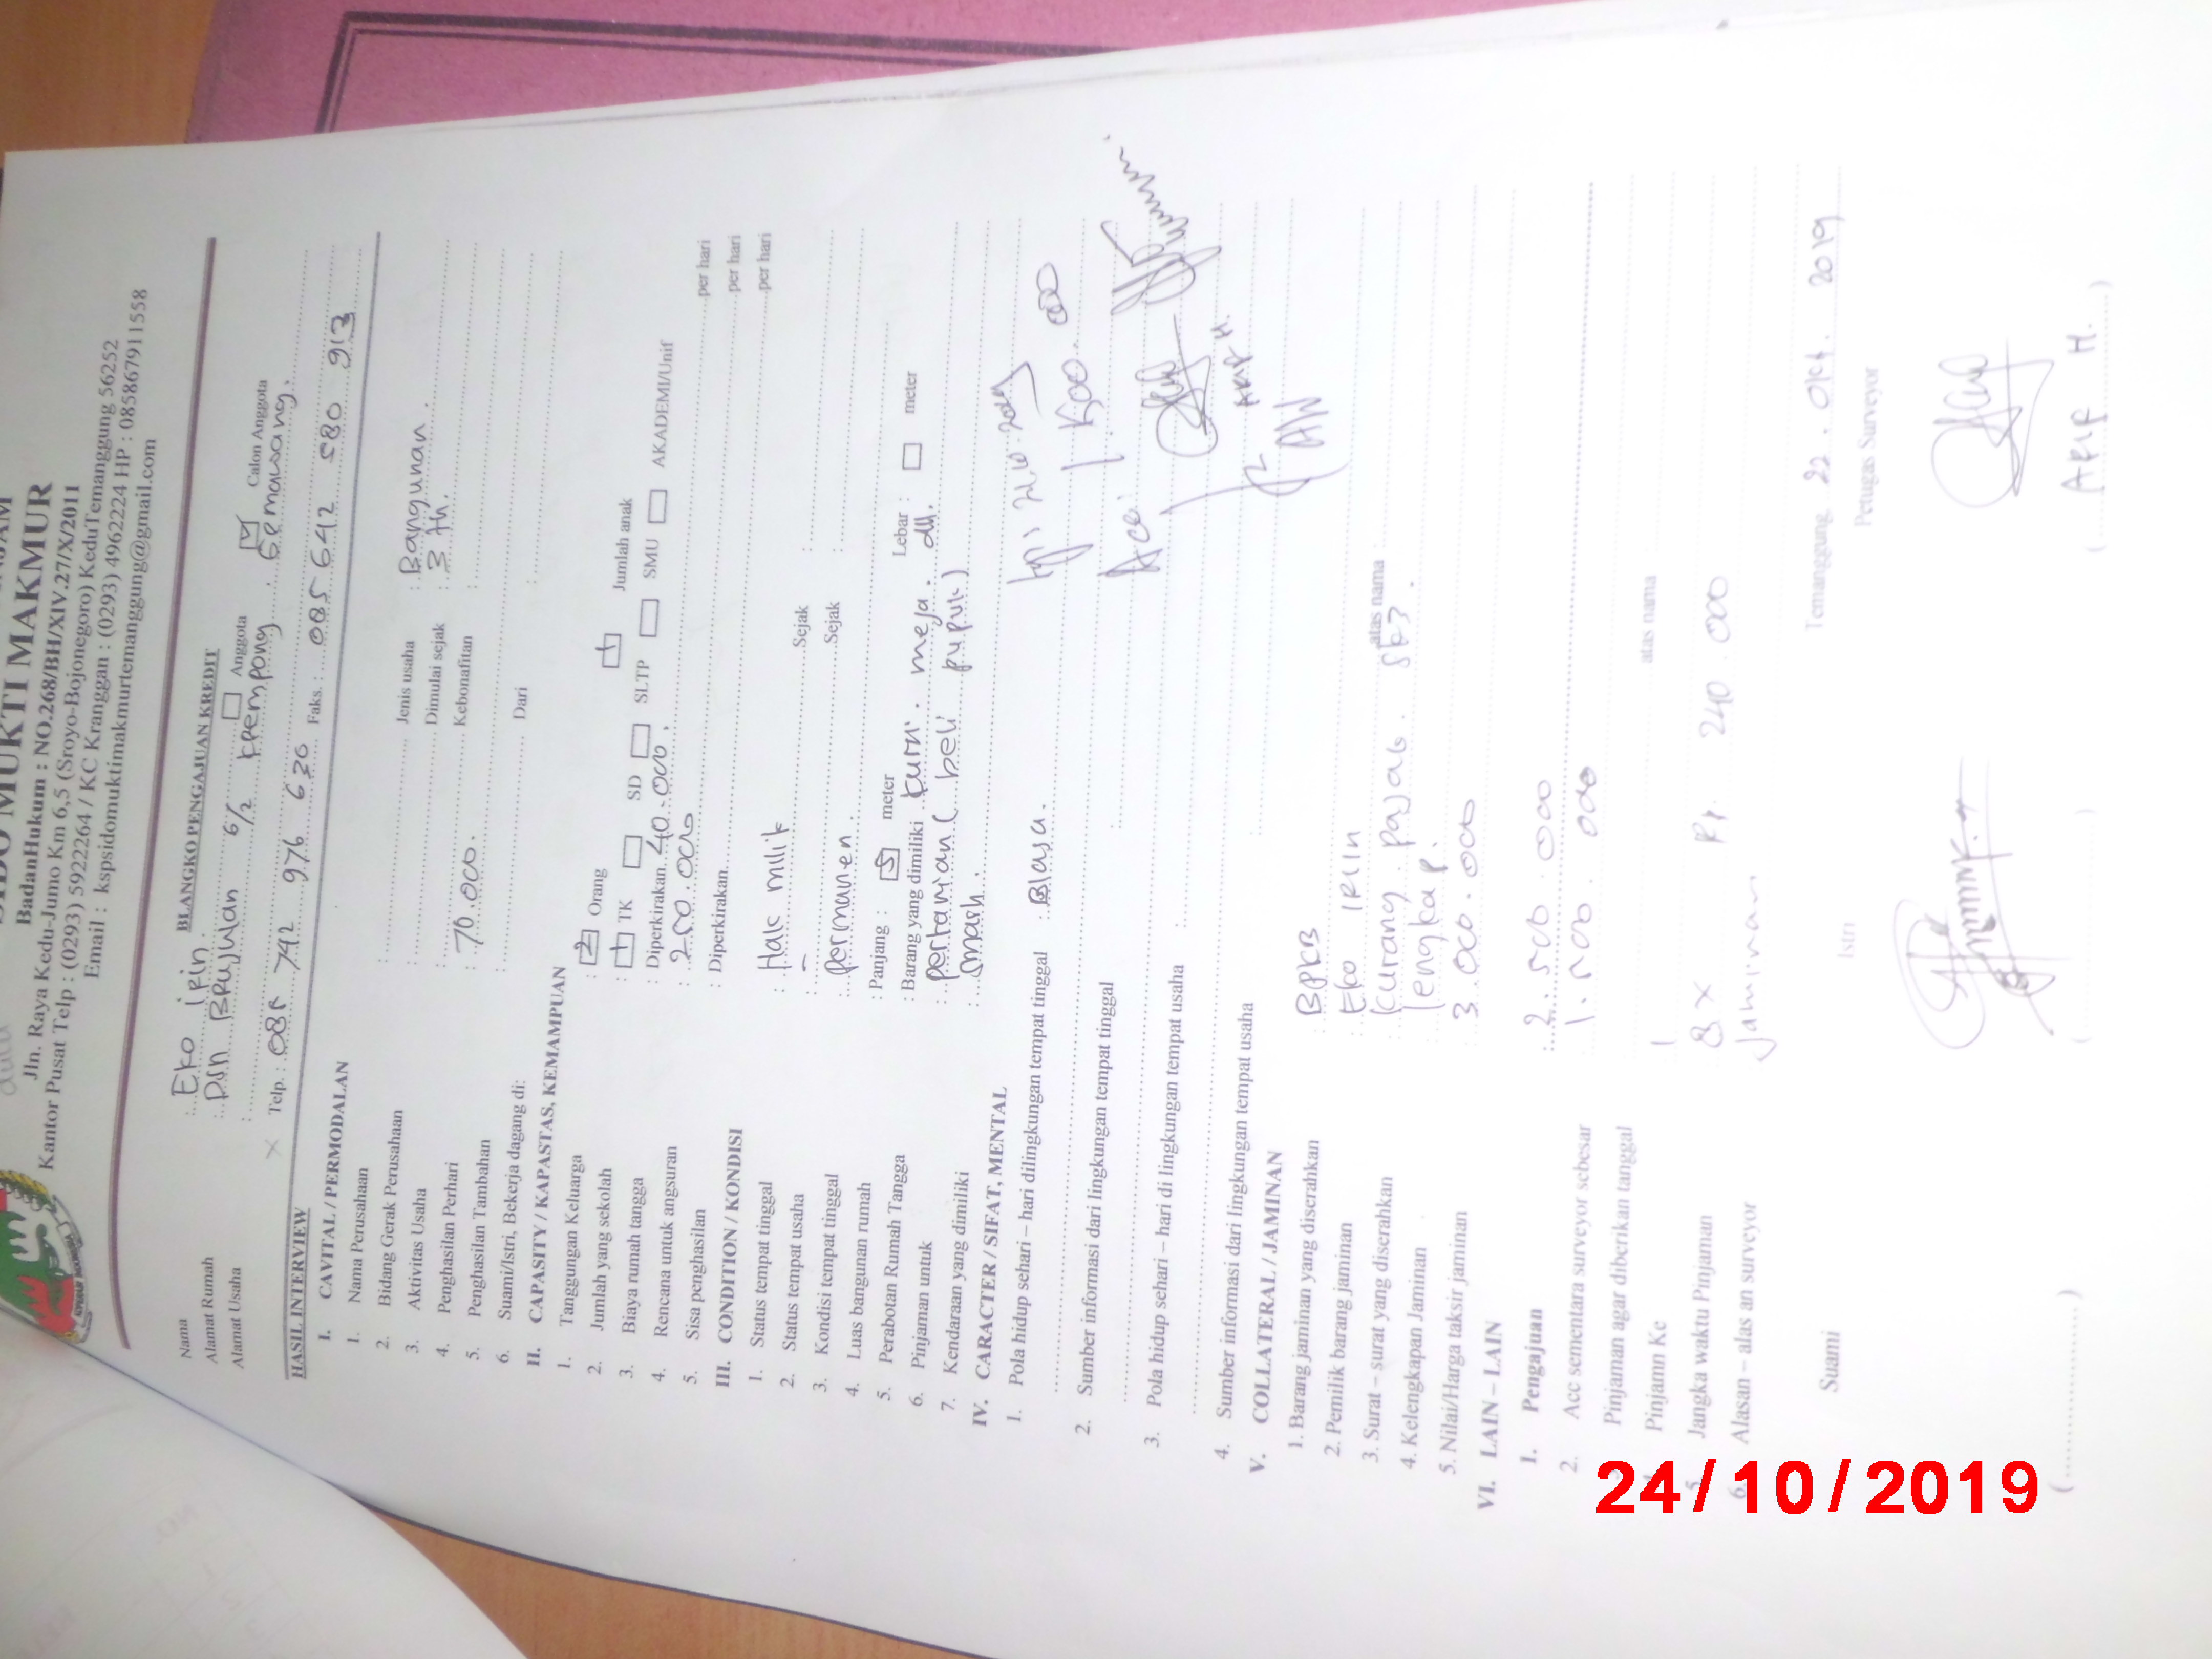 SIDO MUKTI MAKMUR
BadanHukum : NO.268/BH/XIV.27/X/2011
Jln. Raya Kedu-Jumo Km 6,5 (Sroyo-Bojonegoro) KeduTemanggung 56252
Kantor Pusat Telp : (0293) 5922264 / KC Kranggan : (0293) 4962224 HP : 085867911558
Email : kspsidomuktimakmurtemanggung@gmail.com
BLANGKO PENGAJUAN KREDIT
Nama : Eko irin.
Alamat Rumah : Dsn Brujulan 6/2 krempong. Gemawang.
Alamat Usaha : Anggota Calon Anggota
Telp. : 085 742 976 620 Faks. : 085 642 580 913
HASIL INTERVIEW
I. CAVITAL / PERMODALAN
1. Nama Perusahaan :
2. Bidang Gerak Perusahaan : Jenis usaha : Bangunan.
3. Aktivitas Usaha : Dimulai sejak : 3 th.
4. Penghasilan Perhari : 70.000. Kebonafitan :
5. Penghasilan Tambahan :
6. Suami/Istri, Bekerja dagang di: Dari :
II. CAPASITY / KAPASTAS, KEMAMPUAN
1. Tanggungan Keluarga : 2 Orang Jumlah anak 1
2. Jumlah yang sekolah : 1 TK SD SLTP SMU AKADEMI/Unif
3. Biaya rumah tangga : Diperkirakan 40.000. per hari
4. Rencana untuk angsuran : 250.000 per hari
5. Sisa penghasilan : Diperkirakan per hari
III. CONDITION / KONDISI
1. Status tempat tinggal : Hak milik Sejak :
2. Status tempat usaha : - Sejak :
3. Kondisi tempat tinggal : permanen.
4. Luas bangunan rumah : Panjang : 5 meter Lebar : meter
5. Perabotan Rumah Tangga : Barang yang dimiliki kursi. meja. dll.
6. Pinjaman untuk : pertanian ( beli pupuk )
7. Kendaraan yang dimiliki : smash.
IV. CARACTER / SIFAT, MENTAL
1. Pola hidup sehari – hari dilingkungan tempat tinggal : Biasa.
2. Sumber informasi dari lingkungan tempat tinggal :
3. Pola hidup sehari – hari di lingkungan tempat usaha :
4. Sumber informasi dari lingkungan tempat usaha :
Acc.
ARIF H.
V. COLLATERAL / JAMINAN
1. Barang jaminan yang diserahkan : BPKB
2. Pemilik barang jaminan : Eko IRIn
3. Surat – surat yang diserahkan : kurang pajak. atas nama
4. Kelengkapan Jaminan : lengkap.
5. Nilai/Harga taksir jaminan : 3.000.000
VI. LAIN – LAIN
1. Pengajuan : 2.500.000
2. Acc sementara surveyor sebesar : 1.500.000
Pinjaman agar diberikan tanggal
Pinjamn Ke 1 atas nama
5. Jangka waktu Pinjaman 8 x Rp. 240.000
6. Alasan – alas an surveyor Jaminan
Temanggung 22. Okt. 2019
Suami Istri Petugas Surveyor
ARIF H.
24/10/2019